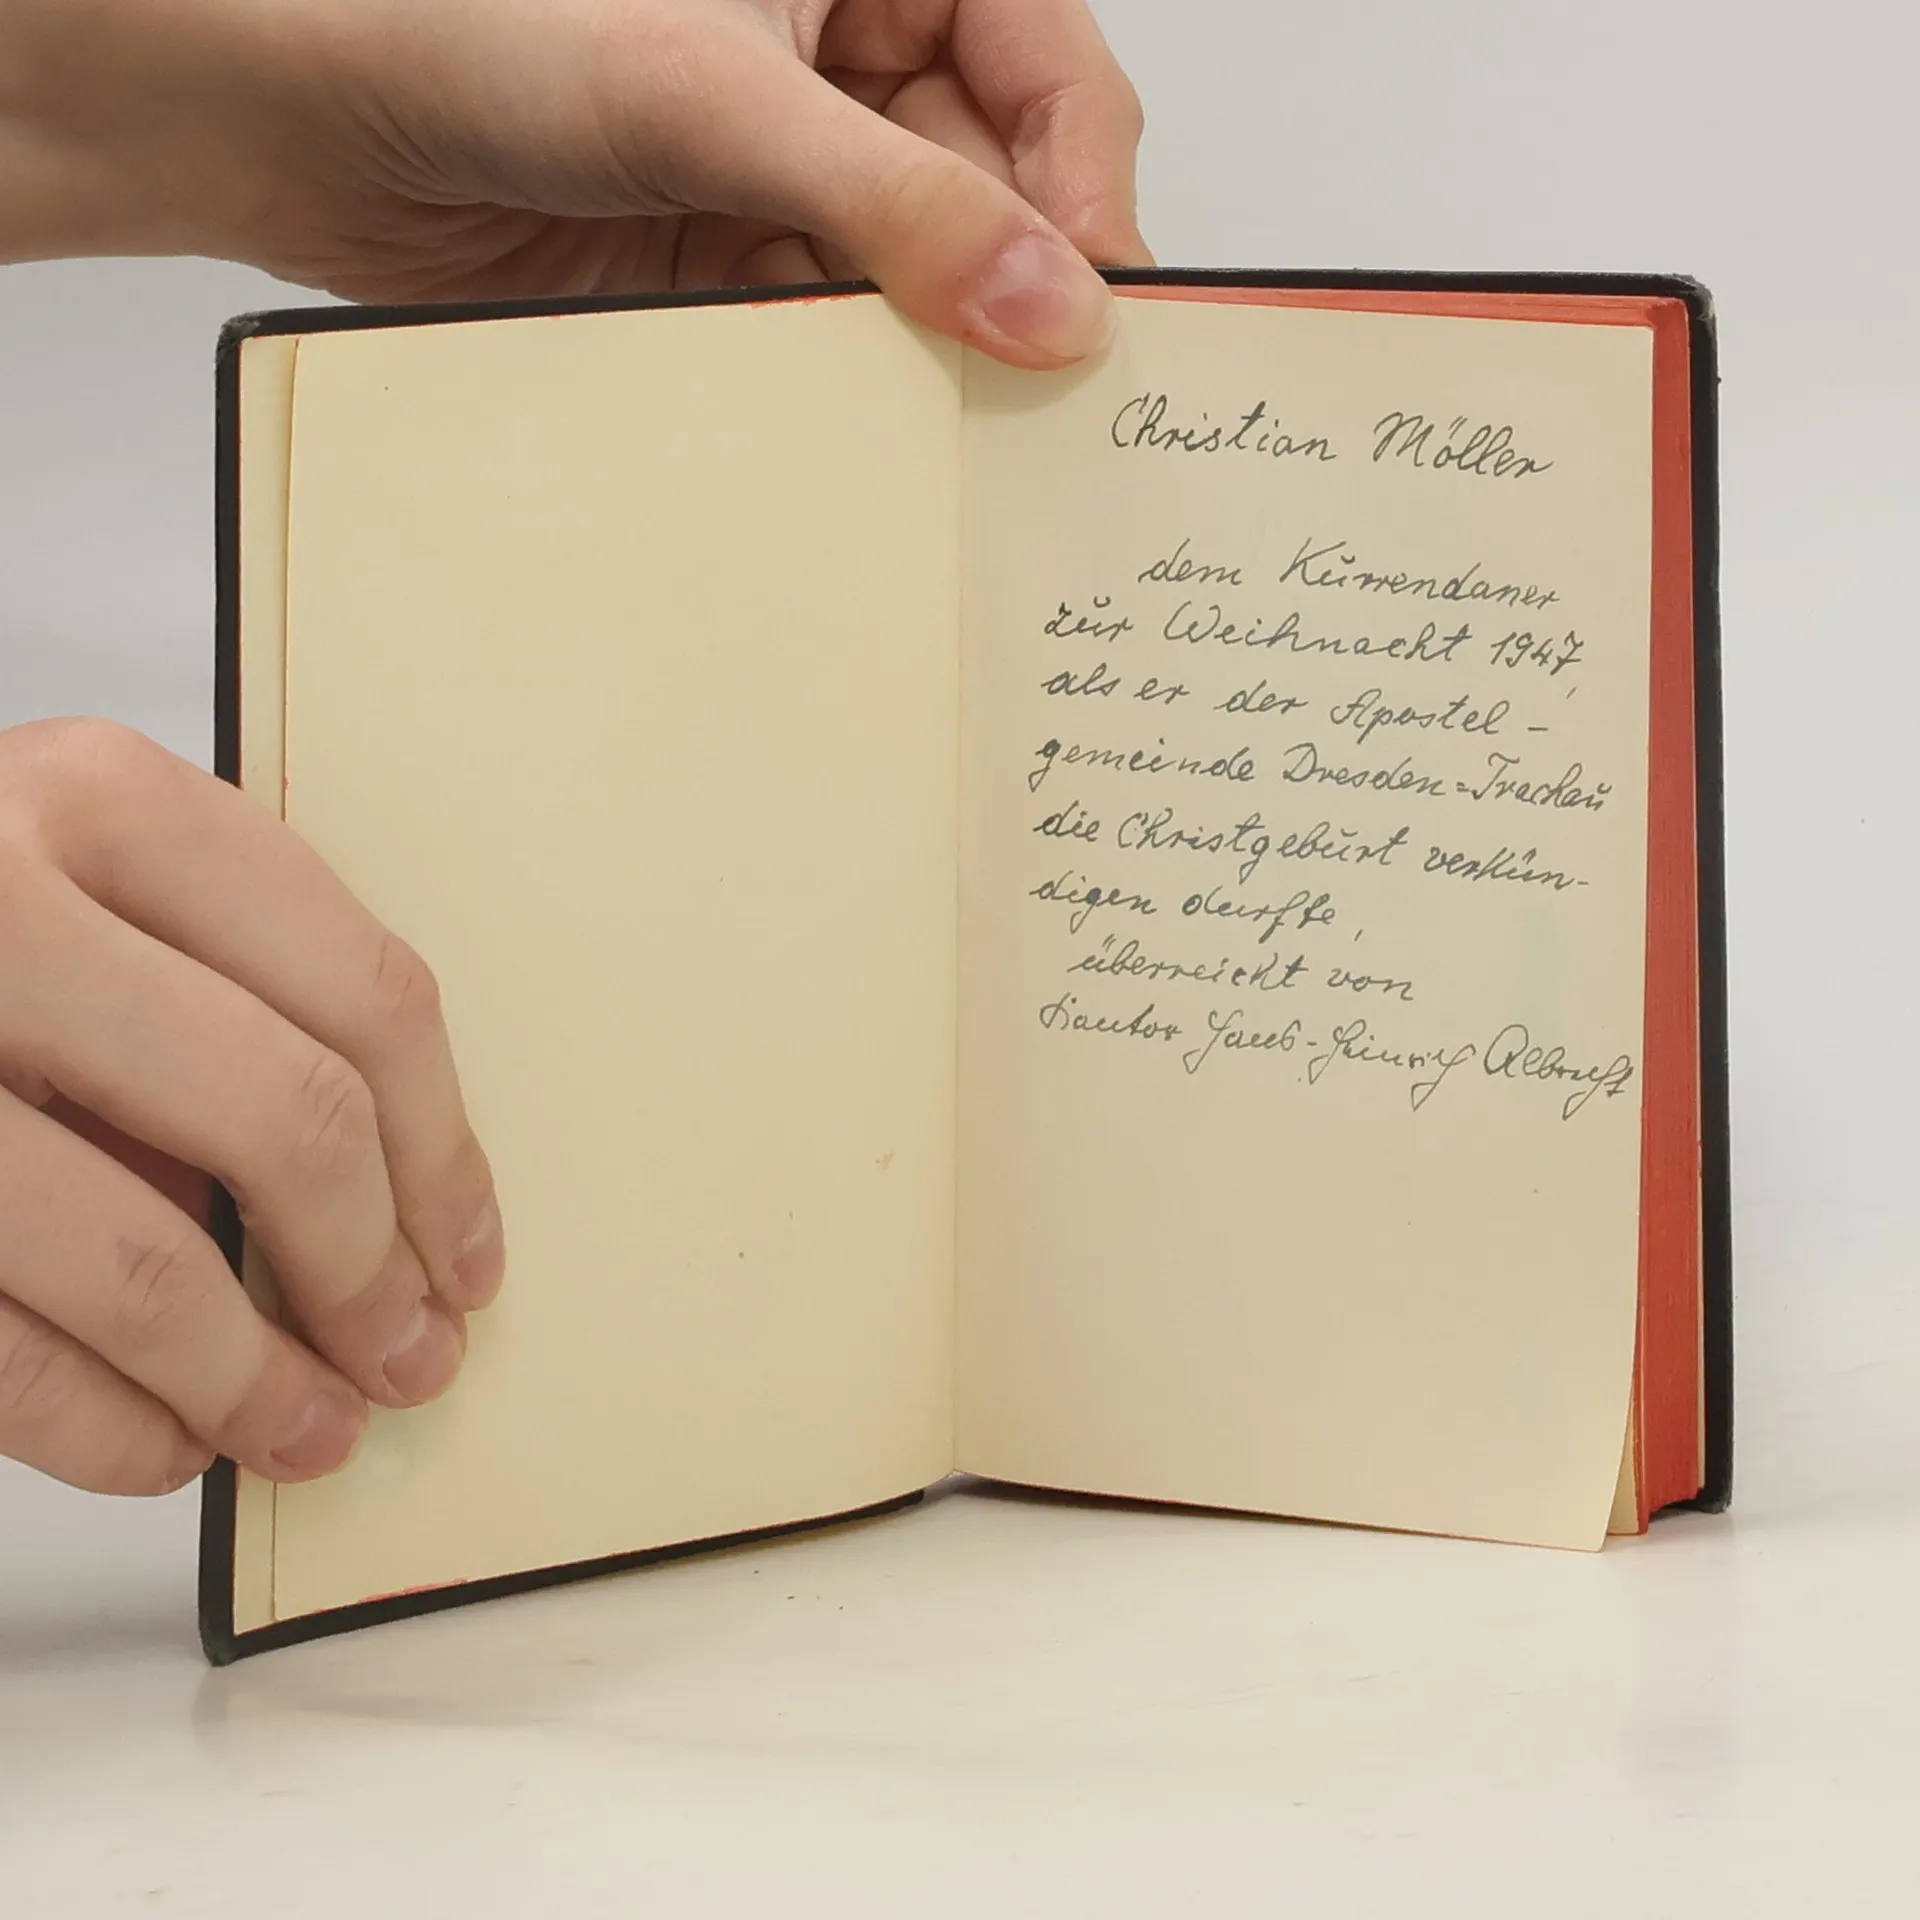 Christian Möller
dem Kurrendaner
zur Weihnacht 1947,
als er der Apostel-
gemeinde Dresden=Trachau
die Christgeburt verkün-
digen durfte,
überreicht von
Kantor Hans-Heinrich Albrecht